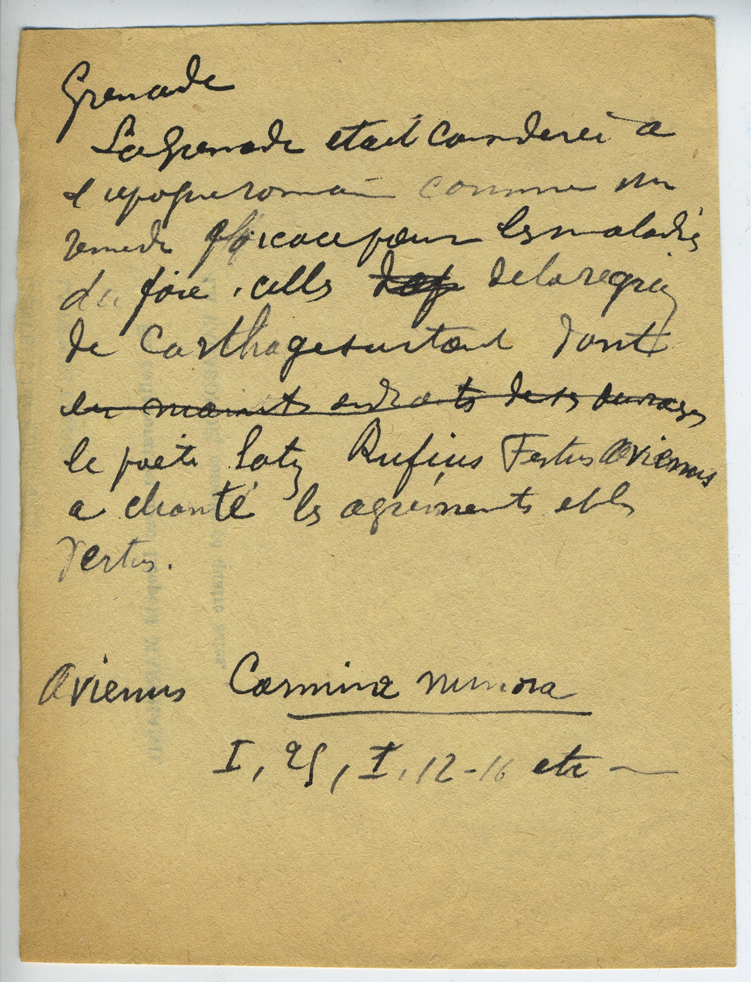 Grenade
La Grenade était considerée à
l'epoque romain comme un
remede efficace pour les maladies
du foie, celles de la region
de Carthage surtout dont
en maints endroits de ses ouvrages
le poète latin Rufius Festus Avienus
a chanté les agréments et les
vertus.
Avienus Carmina minora
I, 25, I, 12-16 etc